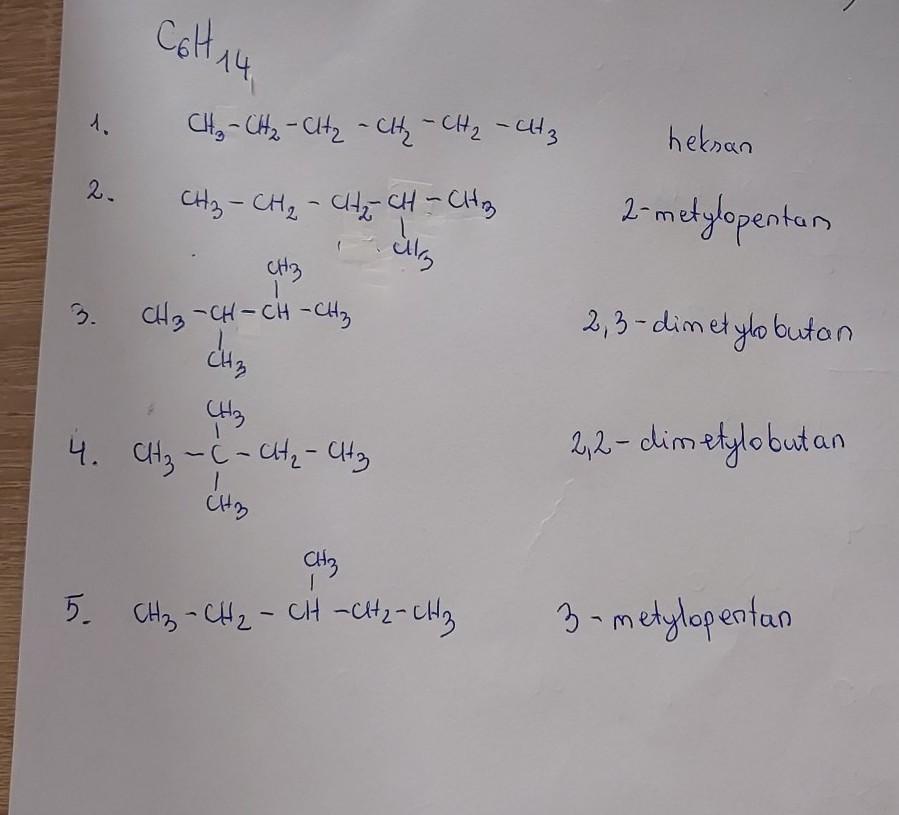 C₆H₁₄
1. CH₃-CH₂-CH₂-CH₂-CH₂-CH₃ heksan
2. CH₃-CH₂-CH₂-CH-CH₃ 2-metylopentan
|
CH₃
CH₃
|
3. CH₃-CH-CH-CH₃ 2,3-dimetylobutan
|
CH₃
CH₃
|
4. CH₃-C-CH₂-CH₃ 2,2-dimetylobutan
|
CH₃
CH₃
|
5. CH₃-CH₂-CH-CH₂-CH₃ 3-metylopentan